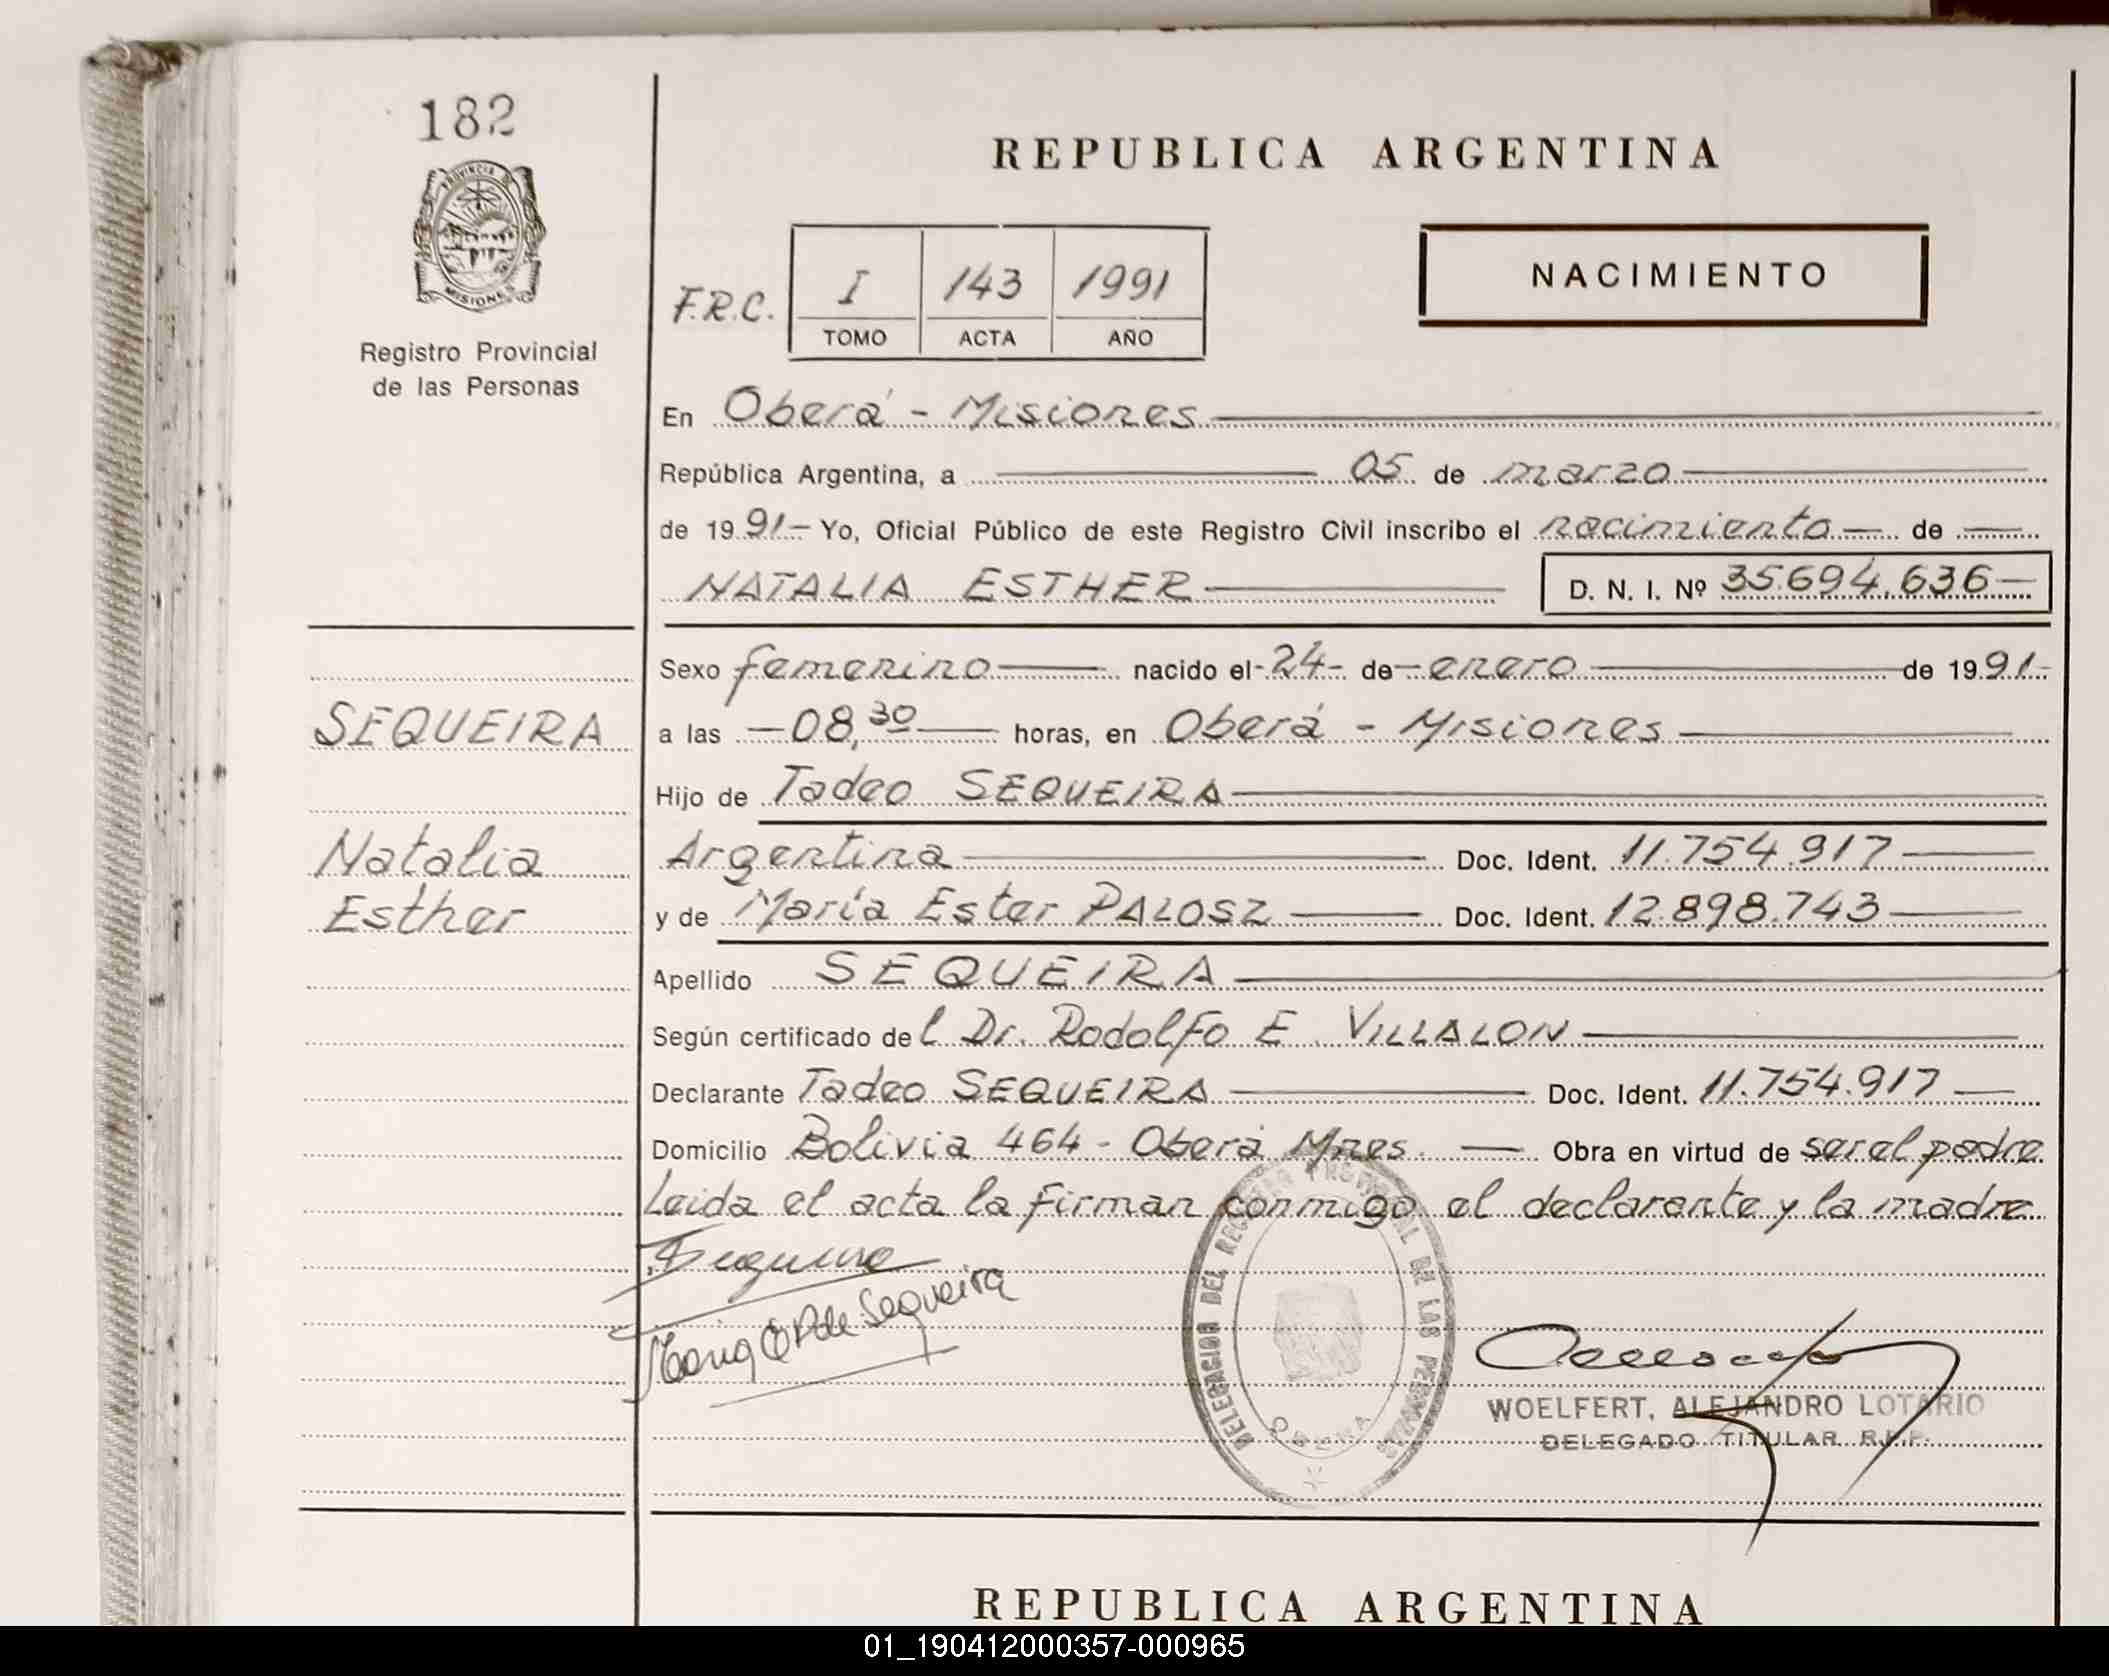 182
PROVINCIA DE
MISIONES
Registro Provincial
de las Personas
REPUBLICA ARGENTINA
F.R.C. I 143 1991
TOMO ACTA AÑO
NACIMIENTO
En Oberá - Misiones
República Argentina, a 05 de marzo
de 1991- Yo, Oficial Público de este Registro Civil inscribo el nacimiento de
NATALIA ESTHER D. N. I. Nº 35.694.636
Sexo femenino nacido el 24 de enero de 1991
SEQUEIRA
a las 08,30 horas, en Oberá - Misiones
Hijo de Tadeo SEQUEIRA
Natalia
Argentina Doc. Ident. 11.754.917
Esther
y de María Ester PALOSZ Doc. Ident. 12.898.743
Apellido SEQUEIRA
Según certificado del Dr. Rodolfo E. VILLALON
Declarante Tadeo SEQUEIRA Doc. Ident. 11.754.917
Domicilio Bolivia 464 - Oberá Mnes. Obra en virtud de ser el padre
Leida el acta la firman conmigo el declarante y la madre
DELEGACION DEL REGISTRO PROVINCIAL DE LAS PERSONAS
OBERA
WOELFERT, ALEJANDRO LOTARIO
DELEGADO TITULAR R.P.P.
REPUBLICA ARGENTINA
01_190412000357-000965